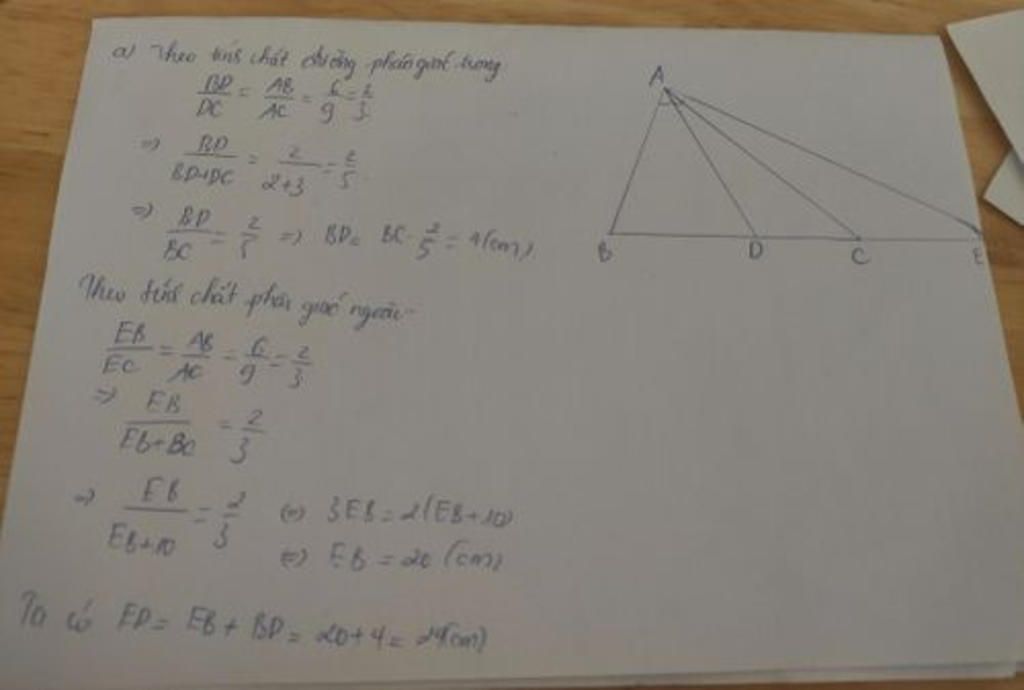 a) Theo tính chất đường phân giác trong
BD/DC = AB/AC = 6/9 = 2/3
=> BD/BD+DC = 2/2+3 = 2/5.
=> BD/BC = 2/5 => BD = BC · 2/5 = 4(cm)
Theo tính chất phân giác ngoài
EB/EC = AB/AC = 6/9 = 2/3
=> EB/EB+BC = 2/3
=> EB/EB+10 = 2/3 <=> 3EB = 2(EB+10)
<=> EB = 20 (cm)
Ta có ED = EB + BD = 20+4 = 24(cm)
A
B D C E